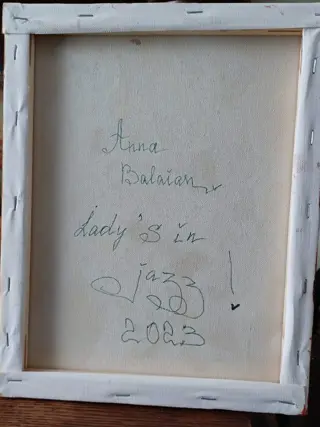 Anna
Balaian
Lady's in
jazz!
2023